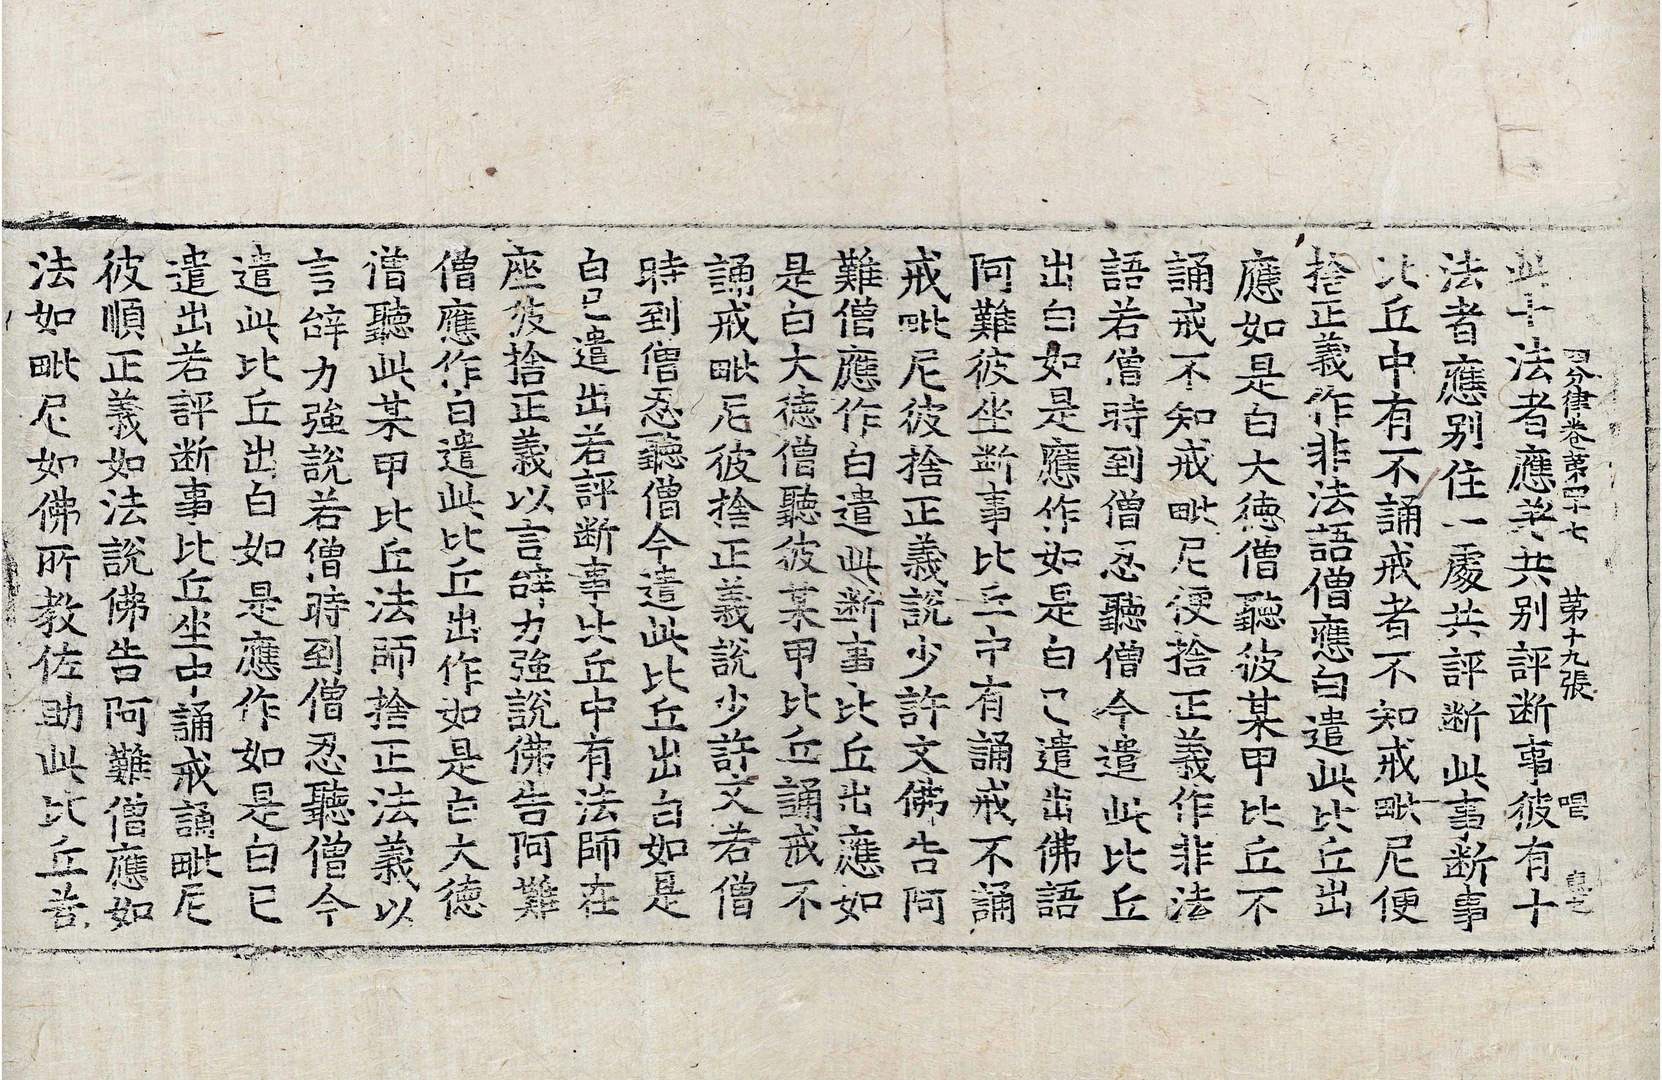 四分律卷第四十七 第十九張 唱
此十法者應差共別評斷事彼有十
法者應別住一處共評斷此事斷事
比丘中有不誦戒者不知戒毗尼便
捨正義作非法語僧應白遣此比丘出
應如是白大德僧聽彼某甲比丘不
誦戒不知戒毗尼便捨正義作非法
語若僧時到僧忍聽僧今遣此比丘
出白如是應作如是白已遣出佛語
阿難彼坐斷事比丘中有誦戒不誦
戒毗尼彼捨正義說少許文佛告阿
難僧應作白遣此斷事比丘出應如
是白大德僧聽彼某甲比丘誦戒不
誦戒毗尼彼捨正義說少許文若僧
時到僧忍聽僧今遣此比丘出白如是
白已遣出若評斷事比丘中有法師在
座彼捨正義以言辭力強說佛告阿難
僧應作白遣此比丘出作如是言大德
僧聽此某甲比丘法師捨正法義以
言辭力強說若僧時到僧忍聽僧今
遣此比丘出白如是應作如是白已
遣出若評斷事比丘坐中誦戒誦毗尼
彼順正義如法說佛告阿難僧應如
法如毗尼如佛所教佐助此比丘若